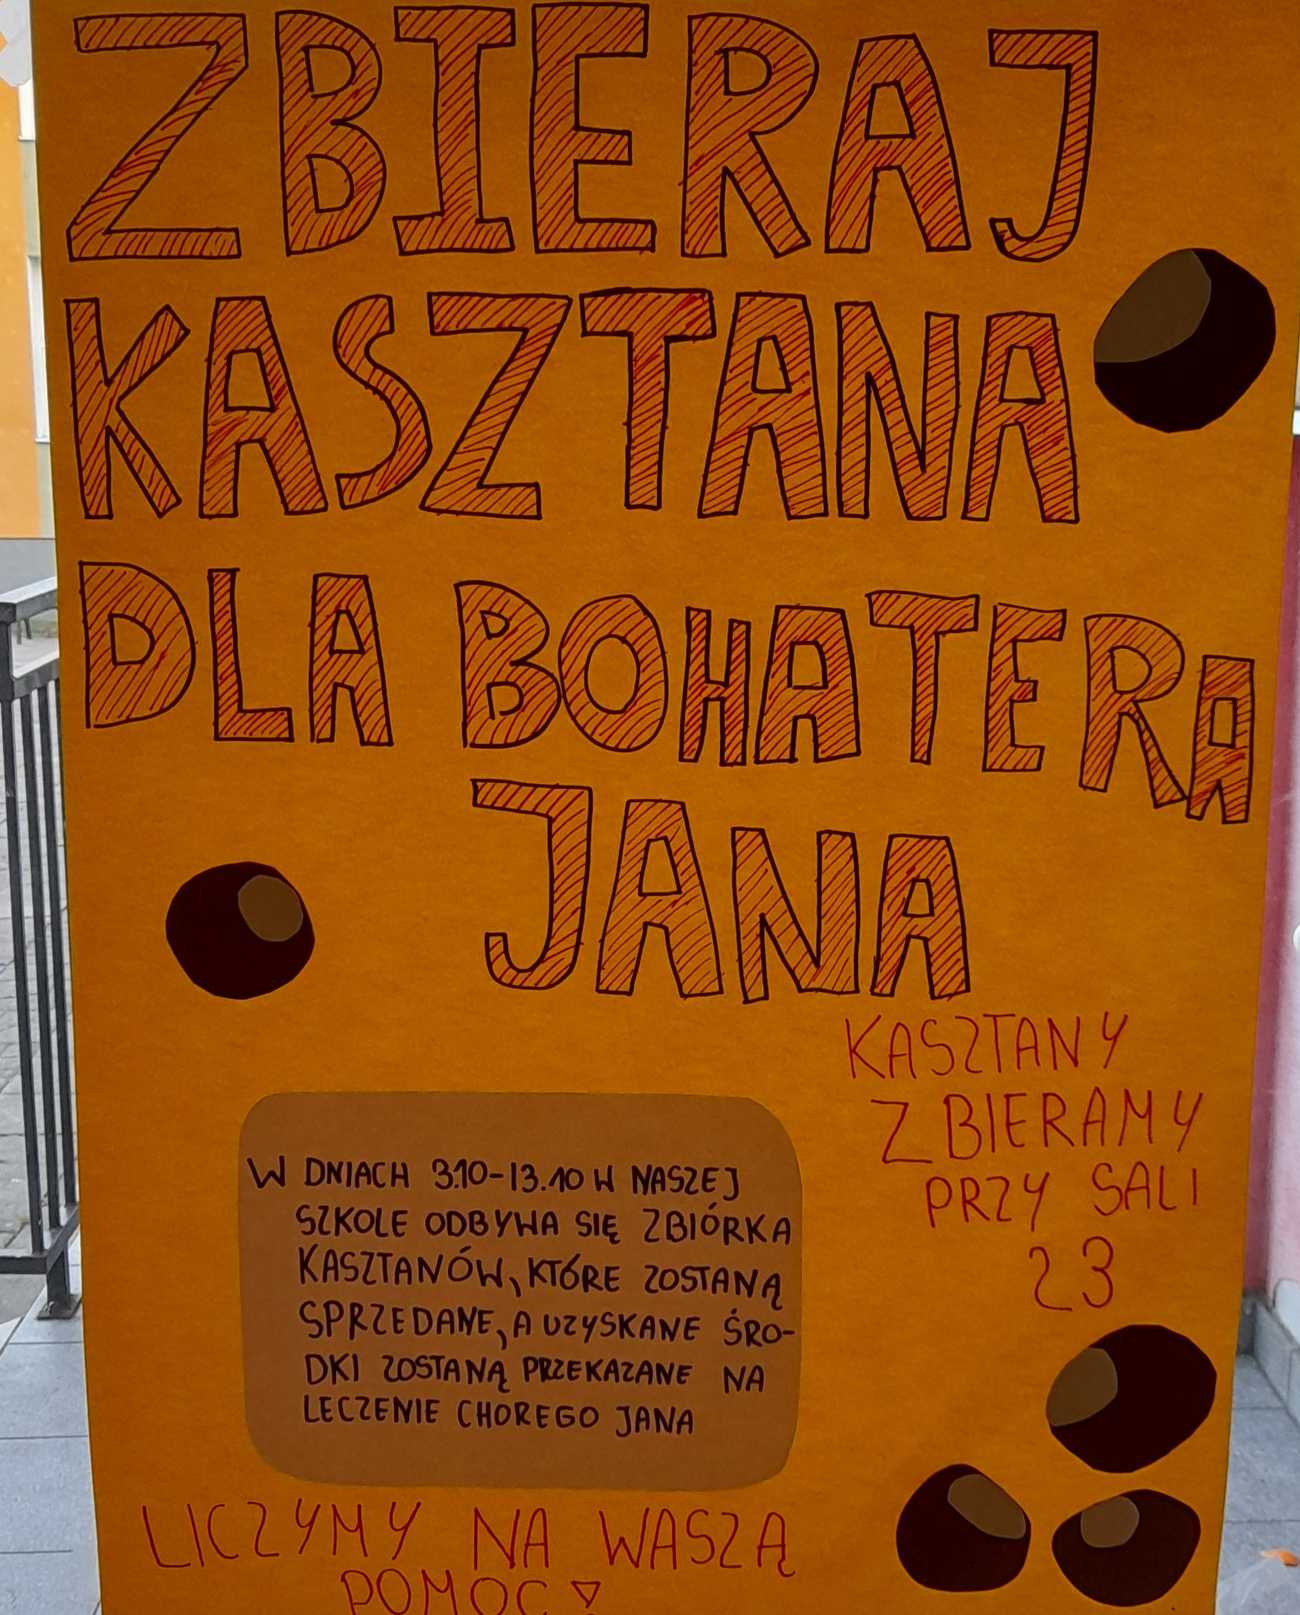 ZBIERAJ
KASZTANA
DLA BOHATERA
JANA
KASZTANY
ZBIERAMY
PRZY SALI
23
W DNIACH 3.10-13.10 W NASZEJ
SZKOLE ODBYWA SIĘ ZBIÓRKA
KASZTANÓW, KTÓRE ZOSTANĄ
SPRZEDANE, A UZYSKANE ŚRO-
DKI ZOSTANĄ PRZEKAZANE NA
LECZENIE CHOREGO JANA
LICZYMY NA WASZĄ
POMOC!